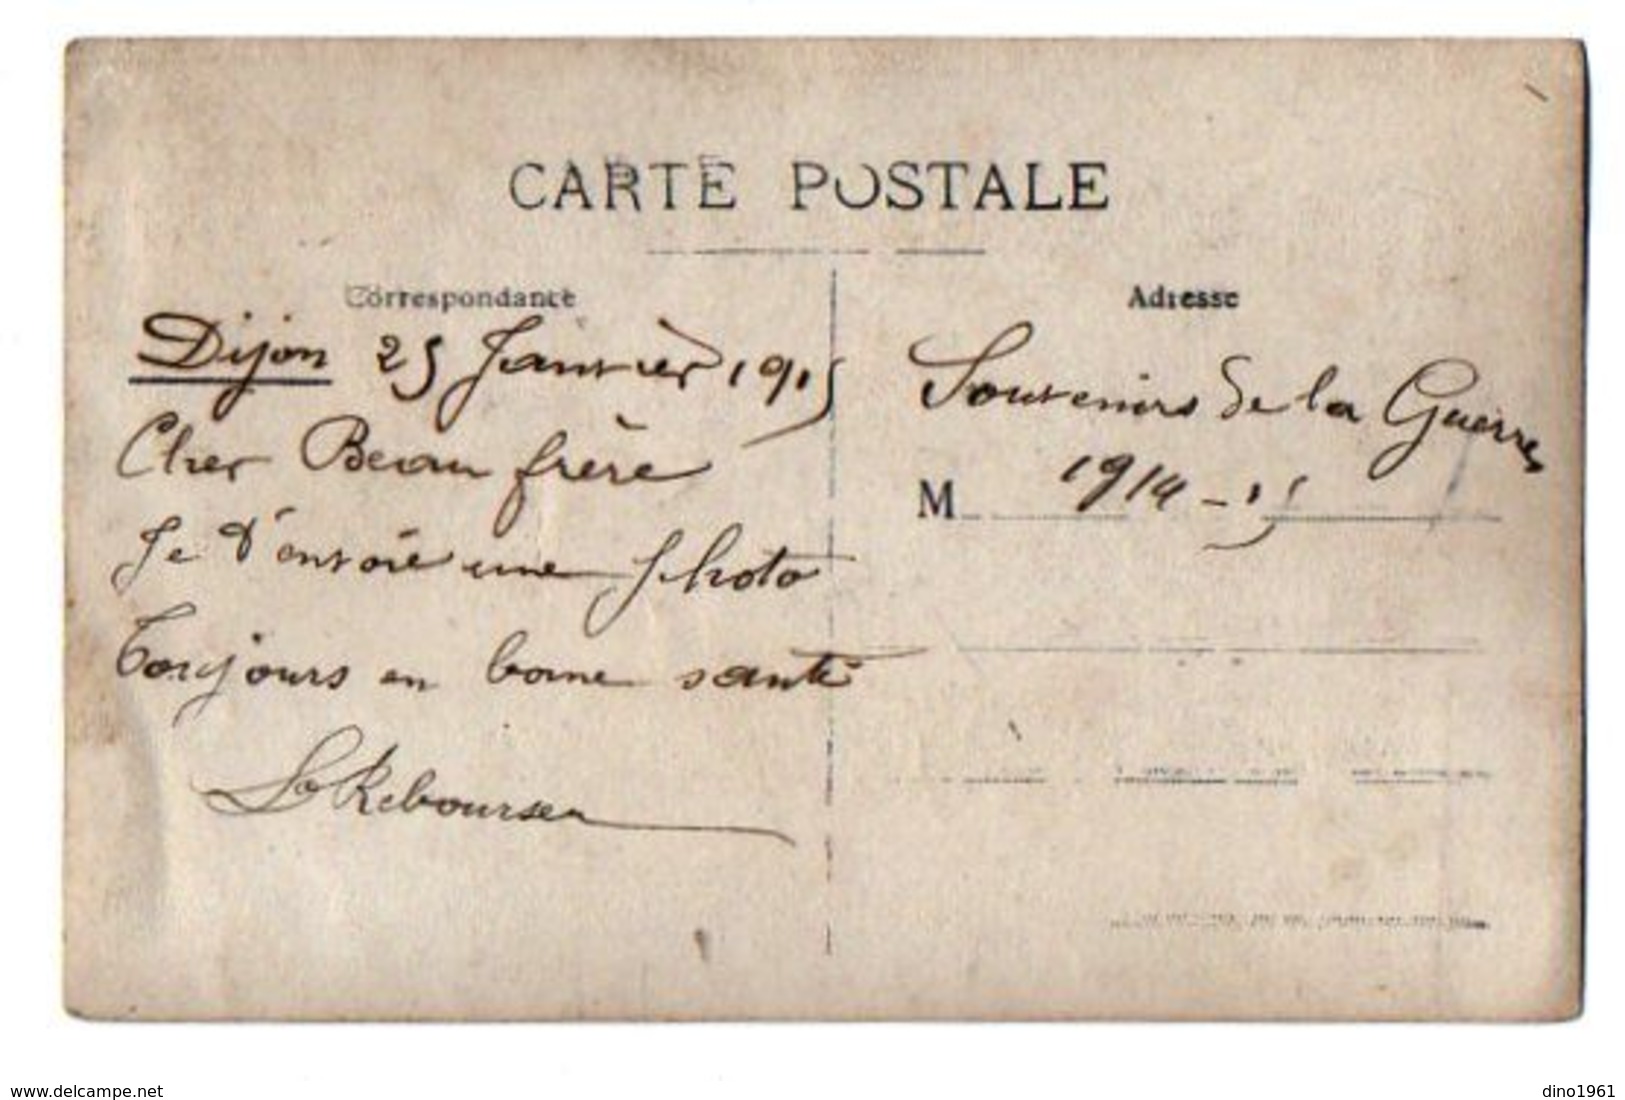 CARTE POSTALE
Correspondance
Dijon 25 Janvier 1915
Cher Beau frère
Je t'envoie une photo
Toujours en bonne santé
Adresse
Souvenirs de la Guerre
M 1914-15
www.delcampe.net
dino1961